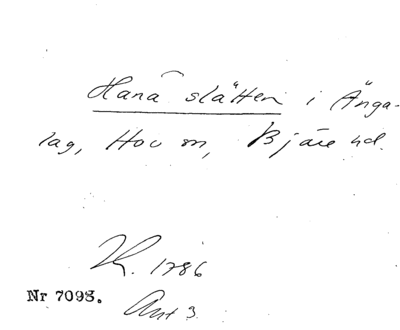 Hanå slätten i Änga-
lag, Hov sn, Bjäre hd.
K. 1786
Nr 7098.
Akt 3